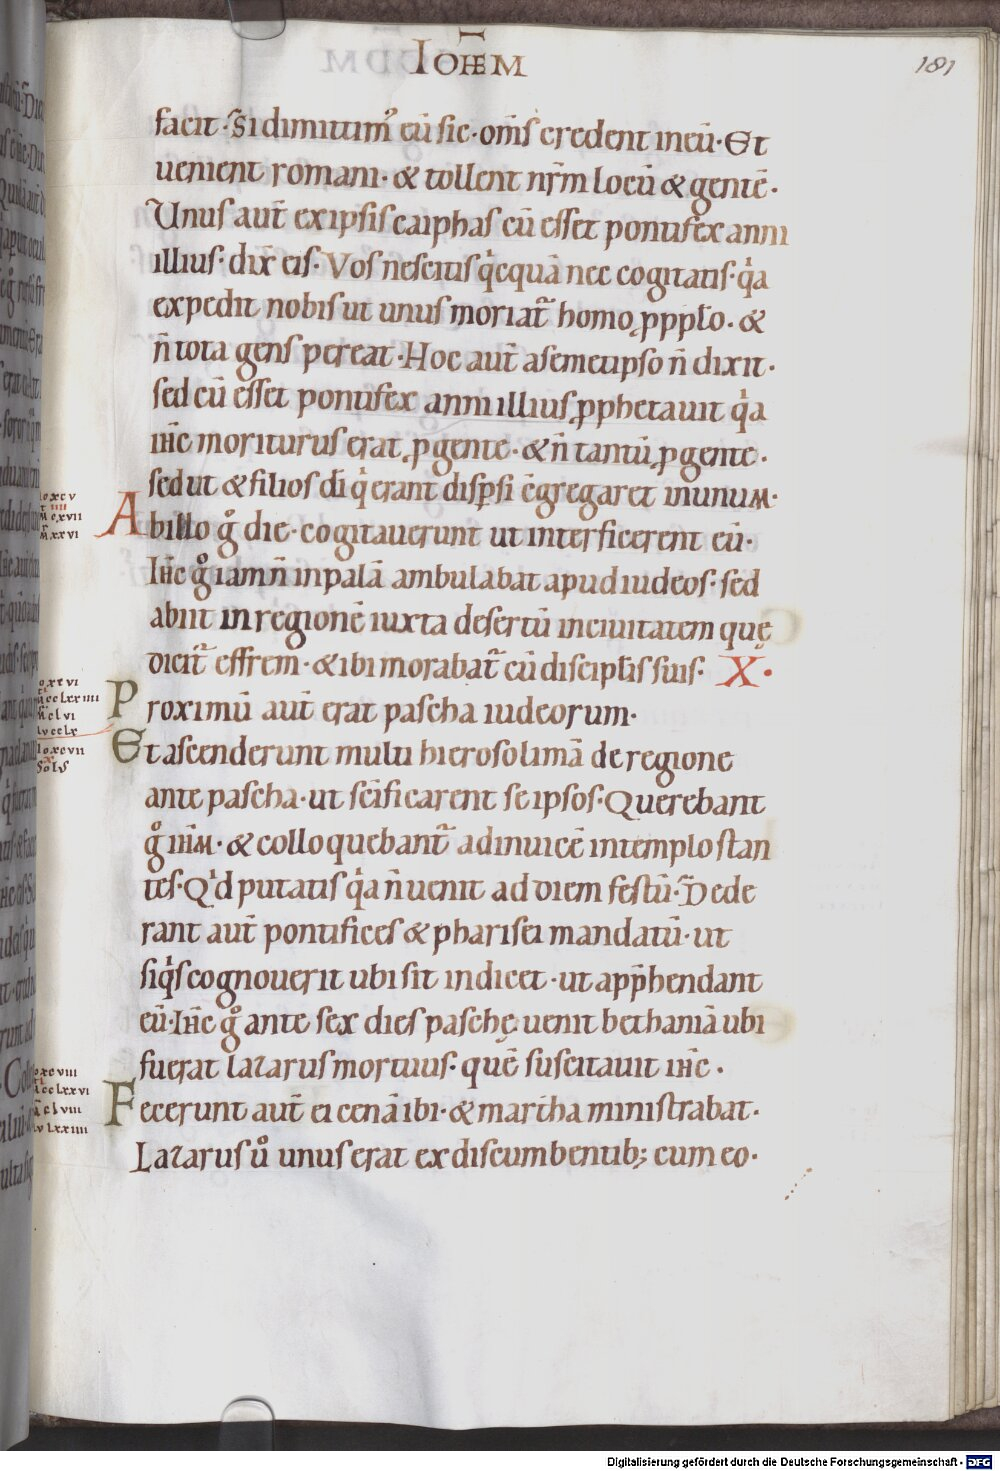 IOHEM
181
facit · Si dimittim᾽ eū sic · om̄s credent in eū · Et
uenient romani · & tollent nr̄m locū & gentē ·
Unus aut̄ ex ipsis caiphas cū esset pontifex anni
illius · dix̄ eis · Vos nescitis qͥcquā nec cogitatis · qͥa
expedit nobis ut unus moriat̄ homo ꝓ pplo · &
n̄ tota gens pereat · Hoc aut̄ a semetipso n̄ dixit ·
sed cū esset pontifex anni illius ꝓphetauit qͥa
ih̄c moriturus erat ꝓ gente · & n̄ tantū ꝓ gente ·
sed ut & filios dī qͥ erant dispsi c̄gregaret in unum ·
Ab illo gͦ die · cogitauerunt ut interficerent eū ·
Ih̄c gͦ iam n̄ in palā ambulabat apud iudeos · sed
abiit in regionē iuxta desertū in ciuitatem quę
dicit̄ effrem · & ibi morabat̄ cū discipłis suis · X ·
Proximū aut̄ erat pascha iudeorum ·
Et ascenderunt multi hierosolimā de regione
ante pascha · ut sc̄ificarent se ipsos · Querebant
gͦ ih̄m · & colloquebant̄ ad inuicē in templo stan
tes · Qͥd putatis qͥa n̄ uenit ad diem festū · Dede
rant aut̄ pontifices & pharisei mandatū · ut
siqͥs cognouerit ubi sit indicet · ut app̄hendant
eū · Ih̄c gͦ ante sex dies paschę uenit bethaniā ubi
fuerat lazarus mortuus · quē suscitauit ih̄c ·
Fecerunt aut̄ ei cenā ibi · & martha ministrabat ·
Lazarus uͦ unus erat ex discumbentib; cum eo ·
Digitalisierung gefördert durch die Deutsche Forschungsgemeinschaft - DFG